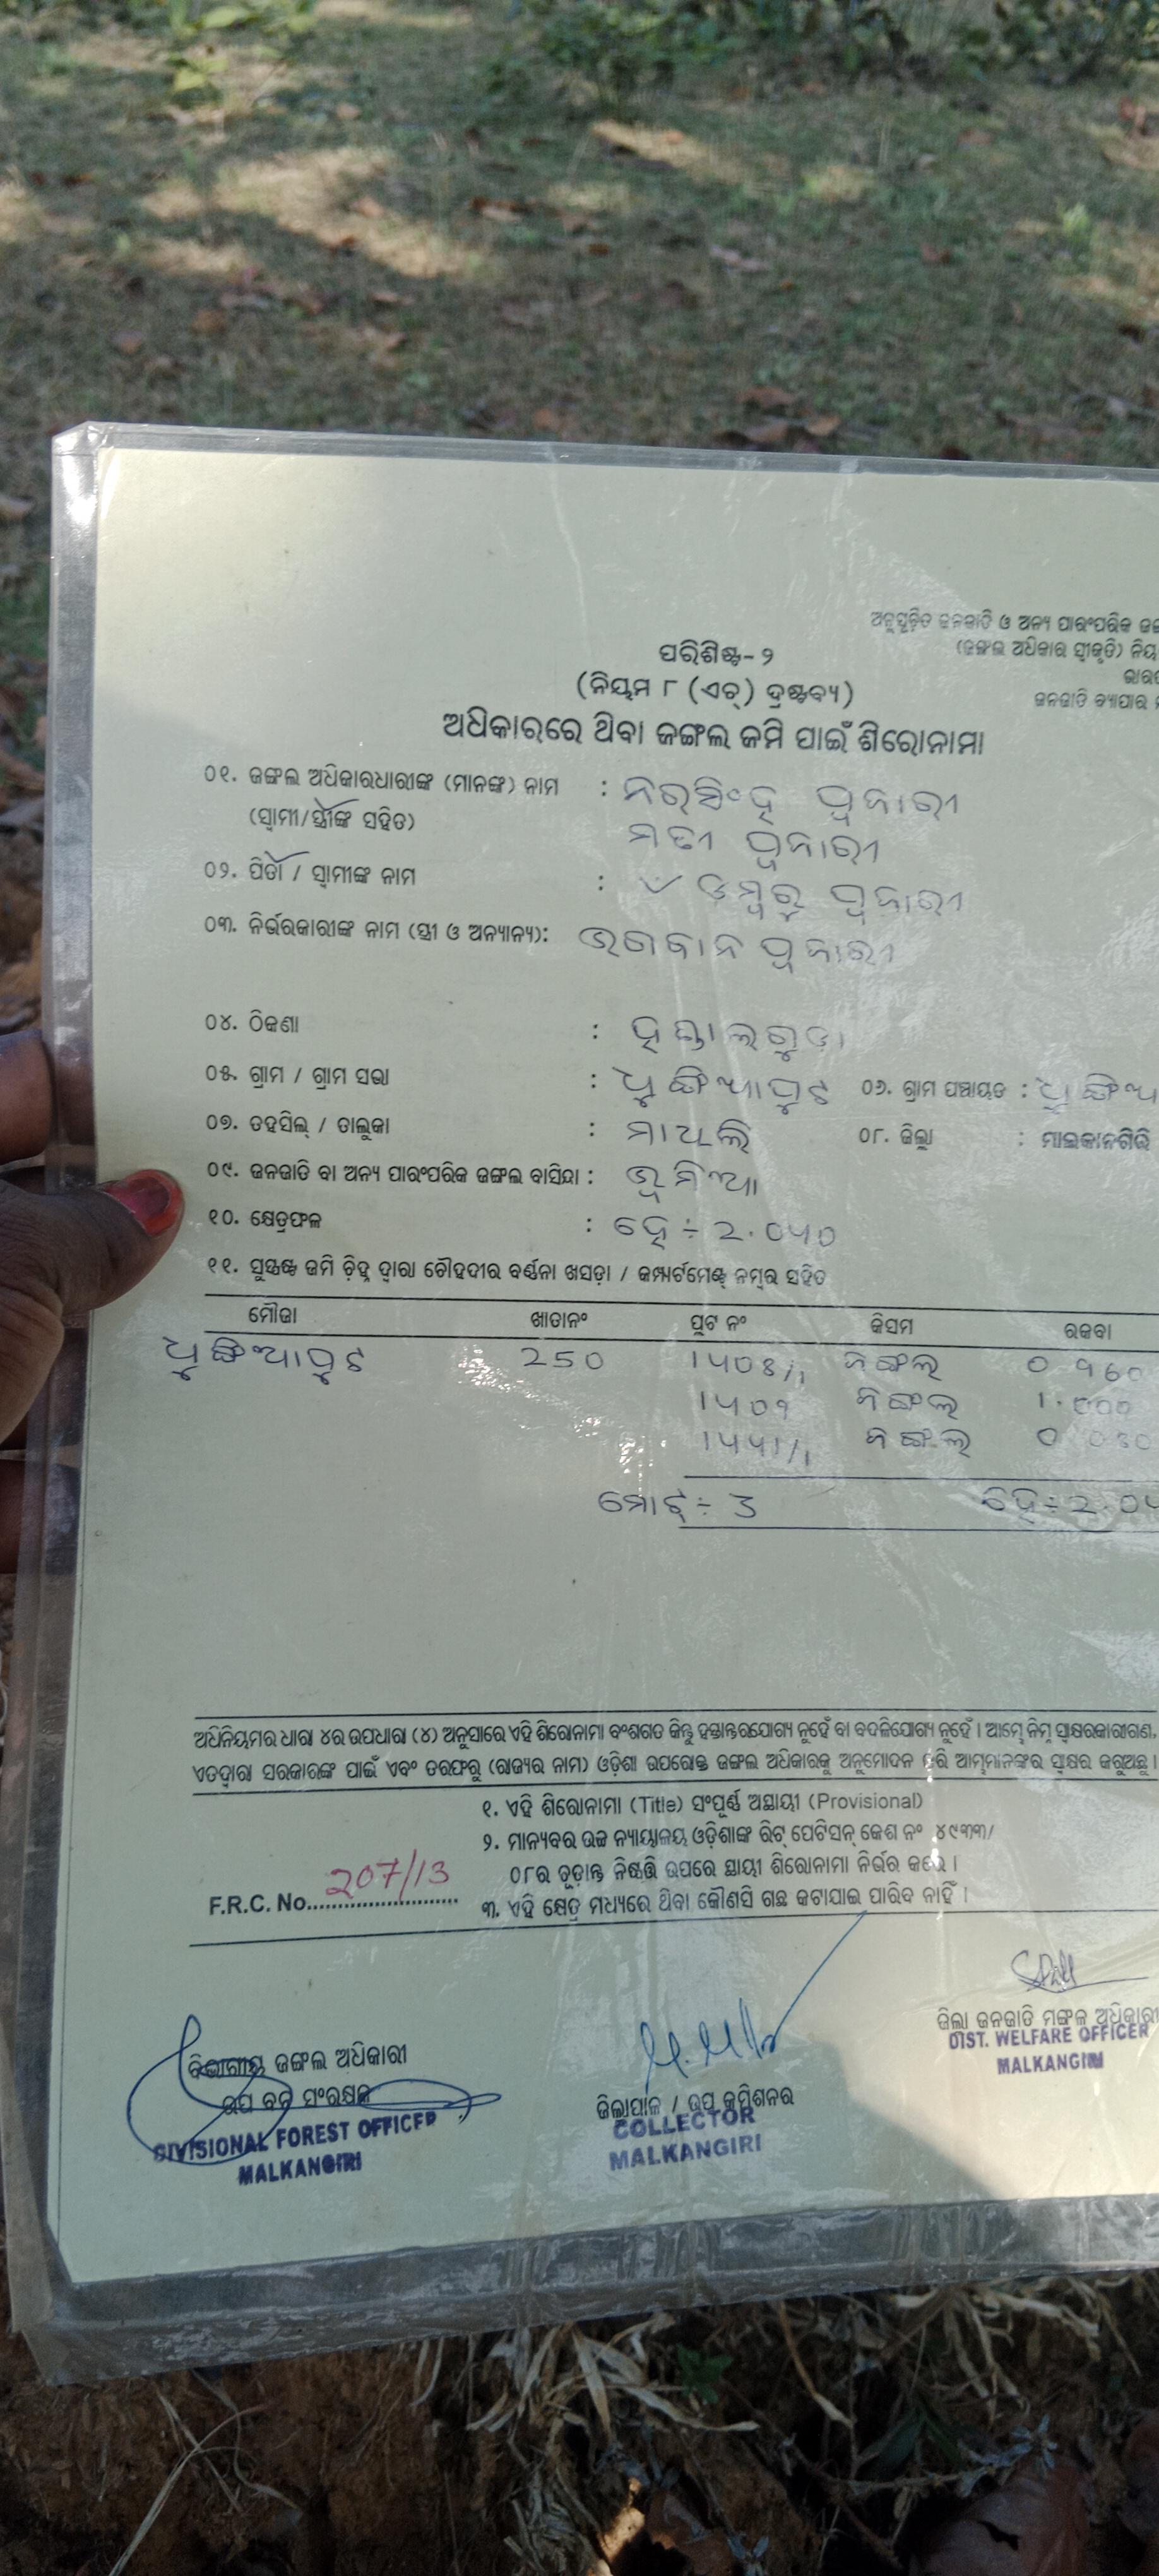 ଅନୁସୂଚିତ ଜନଜାତି ଓ ଅନ୍ୟ ପାରଂପରିକ
(ଜଙ୍ଗଲ ଅଧିକାର ସ୍ୱୀକୃତି)
ଜନଜାତି ବ୍ୟାପାର
ପରିଶିଷ୍ଟ-୨
(ନିୟମ ୮ (ଏଚ୍) ଦ୍ରଷ୍ଟବ୍ୟ)
ଅଧିକାରରେ ଥିବା ଜଙ୍ଗଲ ଜମି ପାଇଁ ଶିରୋନାମା
୦୧. ଜଙ୍ଗଲ ଅଧିକାରଧାରୀଙ୍କ (ମାନଙ୍କ) ନାମ : ନରସିଂହ ପୂଜାରୀ
(ସ୍ୱାମୀ/ସ୍ତ୍ରୀଙ୍କ ସହିତ) ପୂଜାରୀ
୦୨. ପିତା / ସ୍ୱାମୀଙ୍କ ନାମ : ଡମ୍ବରୁ ପୂଜାରୀ
୦୩. ନିର୍ଭରକାରୀଙ୍କ ନାମ (ସ୍ତ୍ରୀ ଓ ଅନ୍ୟାନ୍ୟ): ଭଗବାନ ପୂଜାରୀ
୦୪. ଠିକଣା :
୦୫. ଗ୍ରାମ / ଗ୍ରାମ ସଭା : ଧୁଙ୍ଗିଆପୁଟ ୦୬. ଗ୍ରାମ ପଞ୍ଚାୟତ :
୦୭. ତହସିଲ୍ / ତାଲୁକା : ମାଥିଲି ୦୮. ଜିଲ୍ଲା : ମାଲକାନଗିରି
୦୯. ଜନଜାତି ବା ଅନ୍ୟ ପାରଂପରିକ ଜଙ୍ଗଲ ବାସିନ୍ଦା : ଭୂମିଆ
୧୦. କ୍ଷେତ୍ରଫଳ : ହେ÷ ୨.୦୪୦
୧୧. ସୁସ୍ପଷ୍ଟ ଜମି ଚିହ୍ନ ଦ୍ୱାରା ଚୌହଦୀର ବର୍ଣ୍ଣନା ଖସଡ଼ା / କମ୍ପାର୍ଟମେଣ୍ଟ୍ ନମ୍ବର ସହିତ
ମୌଜା ଖାତାନଂ ପ୍ଲଟ ନଂ କିସମ ରକବା
ଧୁଙ୍ଗିଆପୁଟ 250 ଜଙ୍ଗଲ
ଜଙ୍ଗଲ
ଜଙ୍ଗଲ
ମୋଟ୍ ÷ 3
ଅଧିନିୟମର ଧାରା ୪ର ଉପଧାରା (୪) ଅନୁସାରେ ଏହି ଶିରୋନାମା ବଂଶଗତ କିନ୍ତୁ ହସ୍ତାନ୍ତରଯୋଗ୍ୟ ନୁହେଁ ବା ବଦଳିଯୋଗ୍ୟ ନୁହେଁ । ଆମ୍ଭେ ନିମ୍ନ ସ୍ୱାକ୍ଷରକାରୀଗଣ,
ଏତଦ୍ୱାରା ସରକାରଙ୍କ ପାଇଁ ଏବଂ ତରଫରୁ (ରାଜ୍ୟର ନାମ) ଓଡ଼ିଶା ଉପରୋକ୍ତ ଜଙ୍ଗଲ ଅଧିକାରକୁ ଅନୁମୋଦନ କରି ଆମ୍ଭମାନଙ୍କର ସ୍ୱାକ୍ଷର କରୁଅଛୁ ।
୧. ଏହି ଶିରୋନାମା (Title) ସଂପୂର୍ଣ୍ଣ ଅସ୍ଥାୟୀ (Provisional)
୨. ମାନ୍ୟବର ଉଚ୍ଚ ନ୍ୟାୟାଳୟ ଓଡ଼ିଶାଙ୍କ ରିଟ୍ ପେଟିସନ୍ କେଶ ନଂ ୪୯୩୩/
୦୮ର ଚୂଡ଼ାନ୍ତ ନିଷ୍ପତ୍ତି ଉପରେ ସ୍ଥାୟୀ ଶିରୋନାମା ନିର୍ଭର କରେ ।
F.R.C. No. 207/13
୩. ଏହି କ୍ଷେତ୍ର ମଧ୍ୟରେ ଥିବା କୌଣସି ଗଛ କଟାଯାଇ ପାରିବ ନାହିଁ ।
ବିଭାଗୀୟ ଜଙ୍ଗଲ ଅଧିକାରୀ
ଉପ ବନ ସଂରକ୍ଷକ
DIVISIONAL FOREST OFFICER
MALKANGIRI
ଜିଲ୍ଲାପାଳ / ଉପ କମିଶନର
COLLECTOR
MALKANGIRI
ଜିଲ୍ଲା ଜନଜାତି ମଙ୍ଗଳ ଅଧିକାରୀ
DIST. WELFARE OFFICER
MALKANGIRI